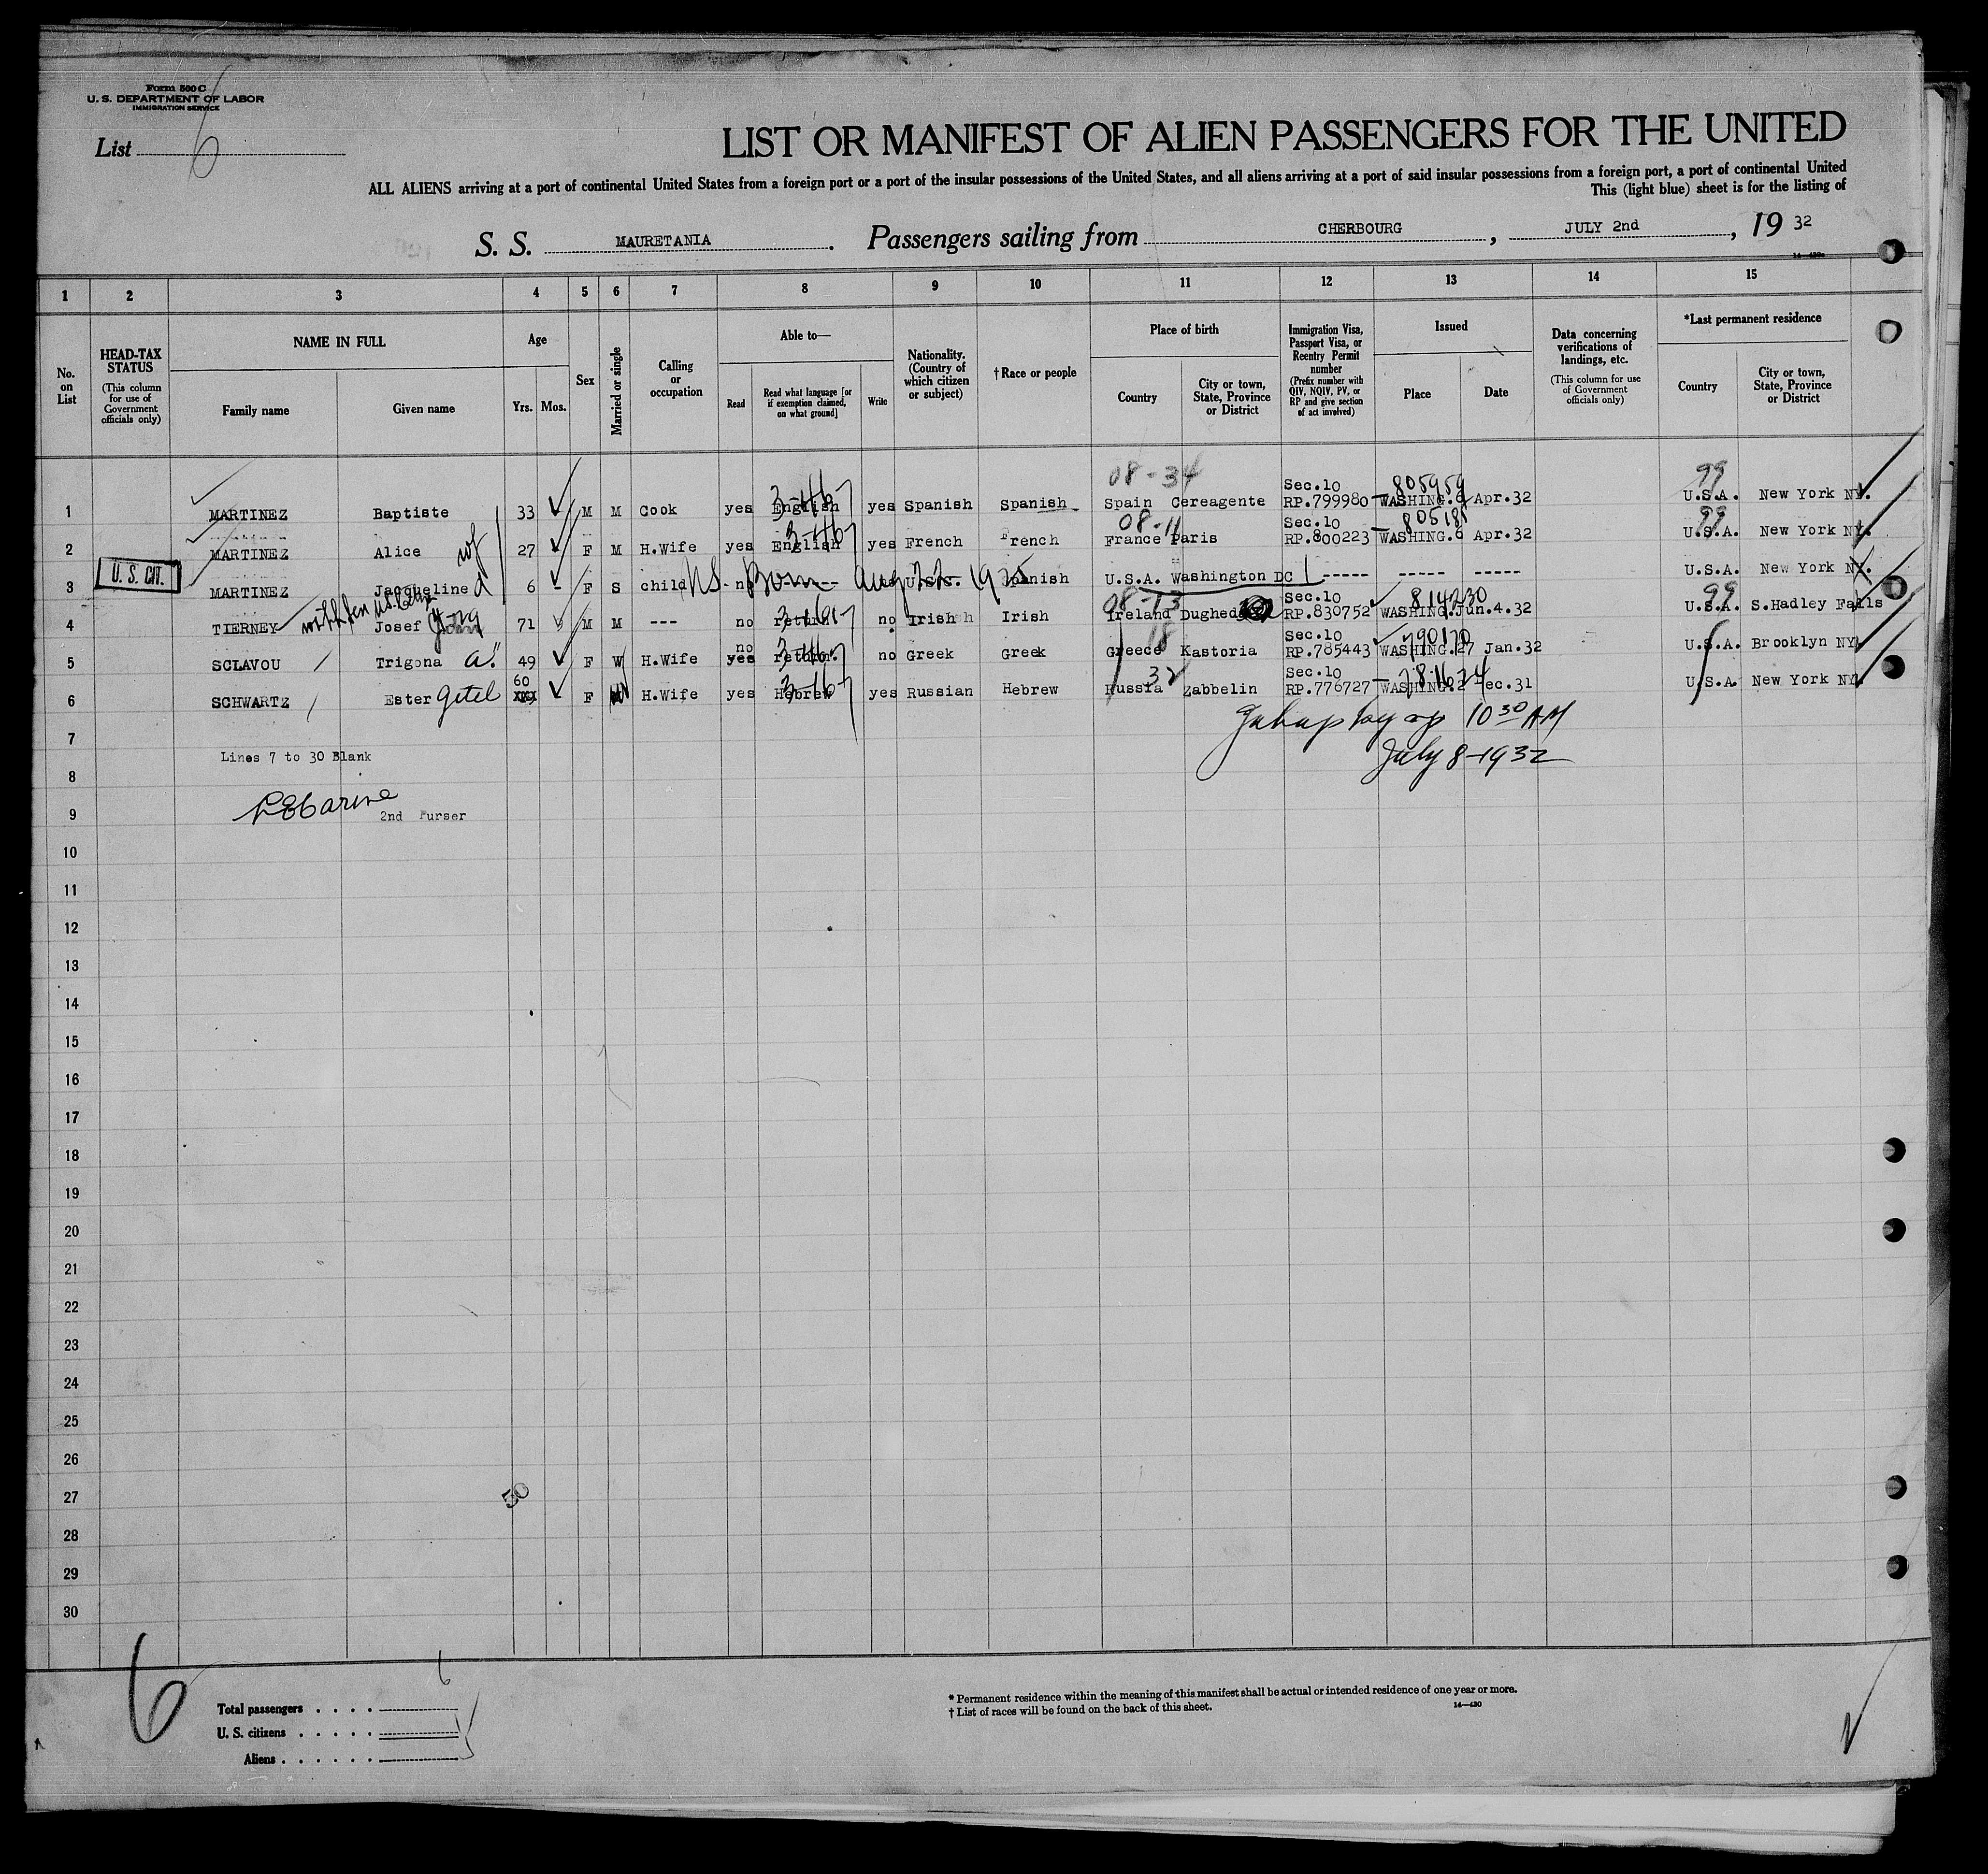 Form 500 C
U. S. DEPARTMENT OF LABOR
IMMIGRATION SERVICE
List 6
LIST OR MANIFEST OF ALIEN PASSENGERS FOR THE UNITED
ALL ALIENS arriving at a port of continental United States from a foreign port or a port of the insular possessions of the United States, and all aliens arriving at a port of said insular possessions from a foreign port, a port of continental United
This (light blue) sheet is for the listing of
S. S. MAURETANIA. Passengers sailing from CHERBOURG, JULY 2nd, 19 32
14—430
1 2 3 4 5 6 7 8 9 10 11 12 13 14 15
No. on List
HEAD-TAX STATUS (This column for use of Government officials only)
NAME IN FULL
Family name
Given name
Age
Yrs. Mos.
Sex
Married or single
Calling or occupation
Able to—
Read
Read what language [or if exemption claimed, on what ground]
Write
Nationality. (Country of which citizen or subject)
†Race or people
Place of birth
Country
City or town, State, Province or District
Immigration Visa, Passport Visa, or Reentry Permit number (Prefix number with QIV, NQIV, PV, or RP and give section of act involved)
Issued
Place
Date
Data concerning verifications of landings, etc. (This column for use of Government officials only)
*Last permanent residence
Country
City or town, State, Province or District
08-34 Sec.10 805959 99
1 MARTINEZ Baptiste 33 M M Cook yes English yes Spanish Spanish Spain Cereagente RP.799980 WASHING.6 Apr.32 U.S.A. New York NY.
wf 08-11 Sec.10 805181 99
2 MARTINEZ Alice 27 F M H.Wife yes English yes French French France Paris RP.800223 WASHING.6 Apr.32 U.S.A. New York NY.
U. S. CIT.
3 MARTINEZ Jacqueline d 6 - F S child no US Born Aug 22 1925 Spanish U.S.A. Washington DC ----- ----- ----- U.S.A. New York NY.
08-13 Sec.10 814230 99
4 TIERNEY Josef John 71 M M --- no return no Irish Irish Ireland RP.830752 WASHING.Jun.4.32 U.S.A. S.Hadley Falls
no 18 Sec.10 790170
5 SCLAVOU Trigona a. 49 F W H.Wife yes return. no Greek Greek Greece Kastoria RP.785443 WASHING.27 Jan.32 U.S.A. Brooklyn NY
60 32 Sec.10
6 SCHWARTZ Ester Getel xxx F H.Wife yes Hebrew yes Russian Hebrew Russia Zabbelin RP.776727 WASHING.2 ec.31 U.S.A. New York NY.
10 30 AM
7
July 8-1932
Lines 7 to 30 Blank
8
9 2nd Purser
10
11
12
13
14
15
16
17
18
19
20
21
22
23
24
25
26
27 50
28
29
30
6
Total passengers . . . . 6
U. S. citizens . . . . .
Aliens . . . . . .
* Permanent residence within the meaning of this manifest shall be actual or intended residence of one year or more.
† List of races will be found on the back of this sheet.
14—430